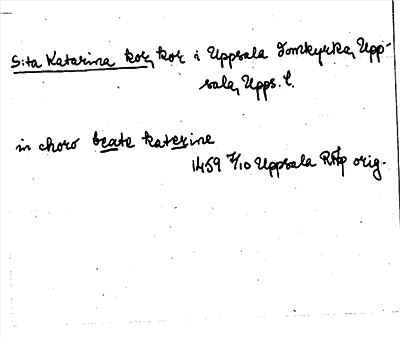 S:ta Katarina kor, kor i Uppsala Domkyrka, Upp-
sala, Upps. l.
in choro beate katerine
1459 7/10 Uppsala RAp orig.